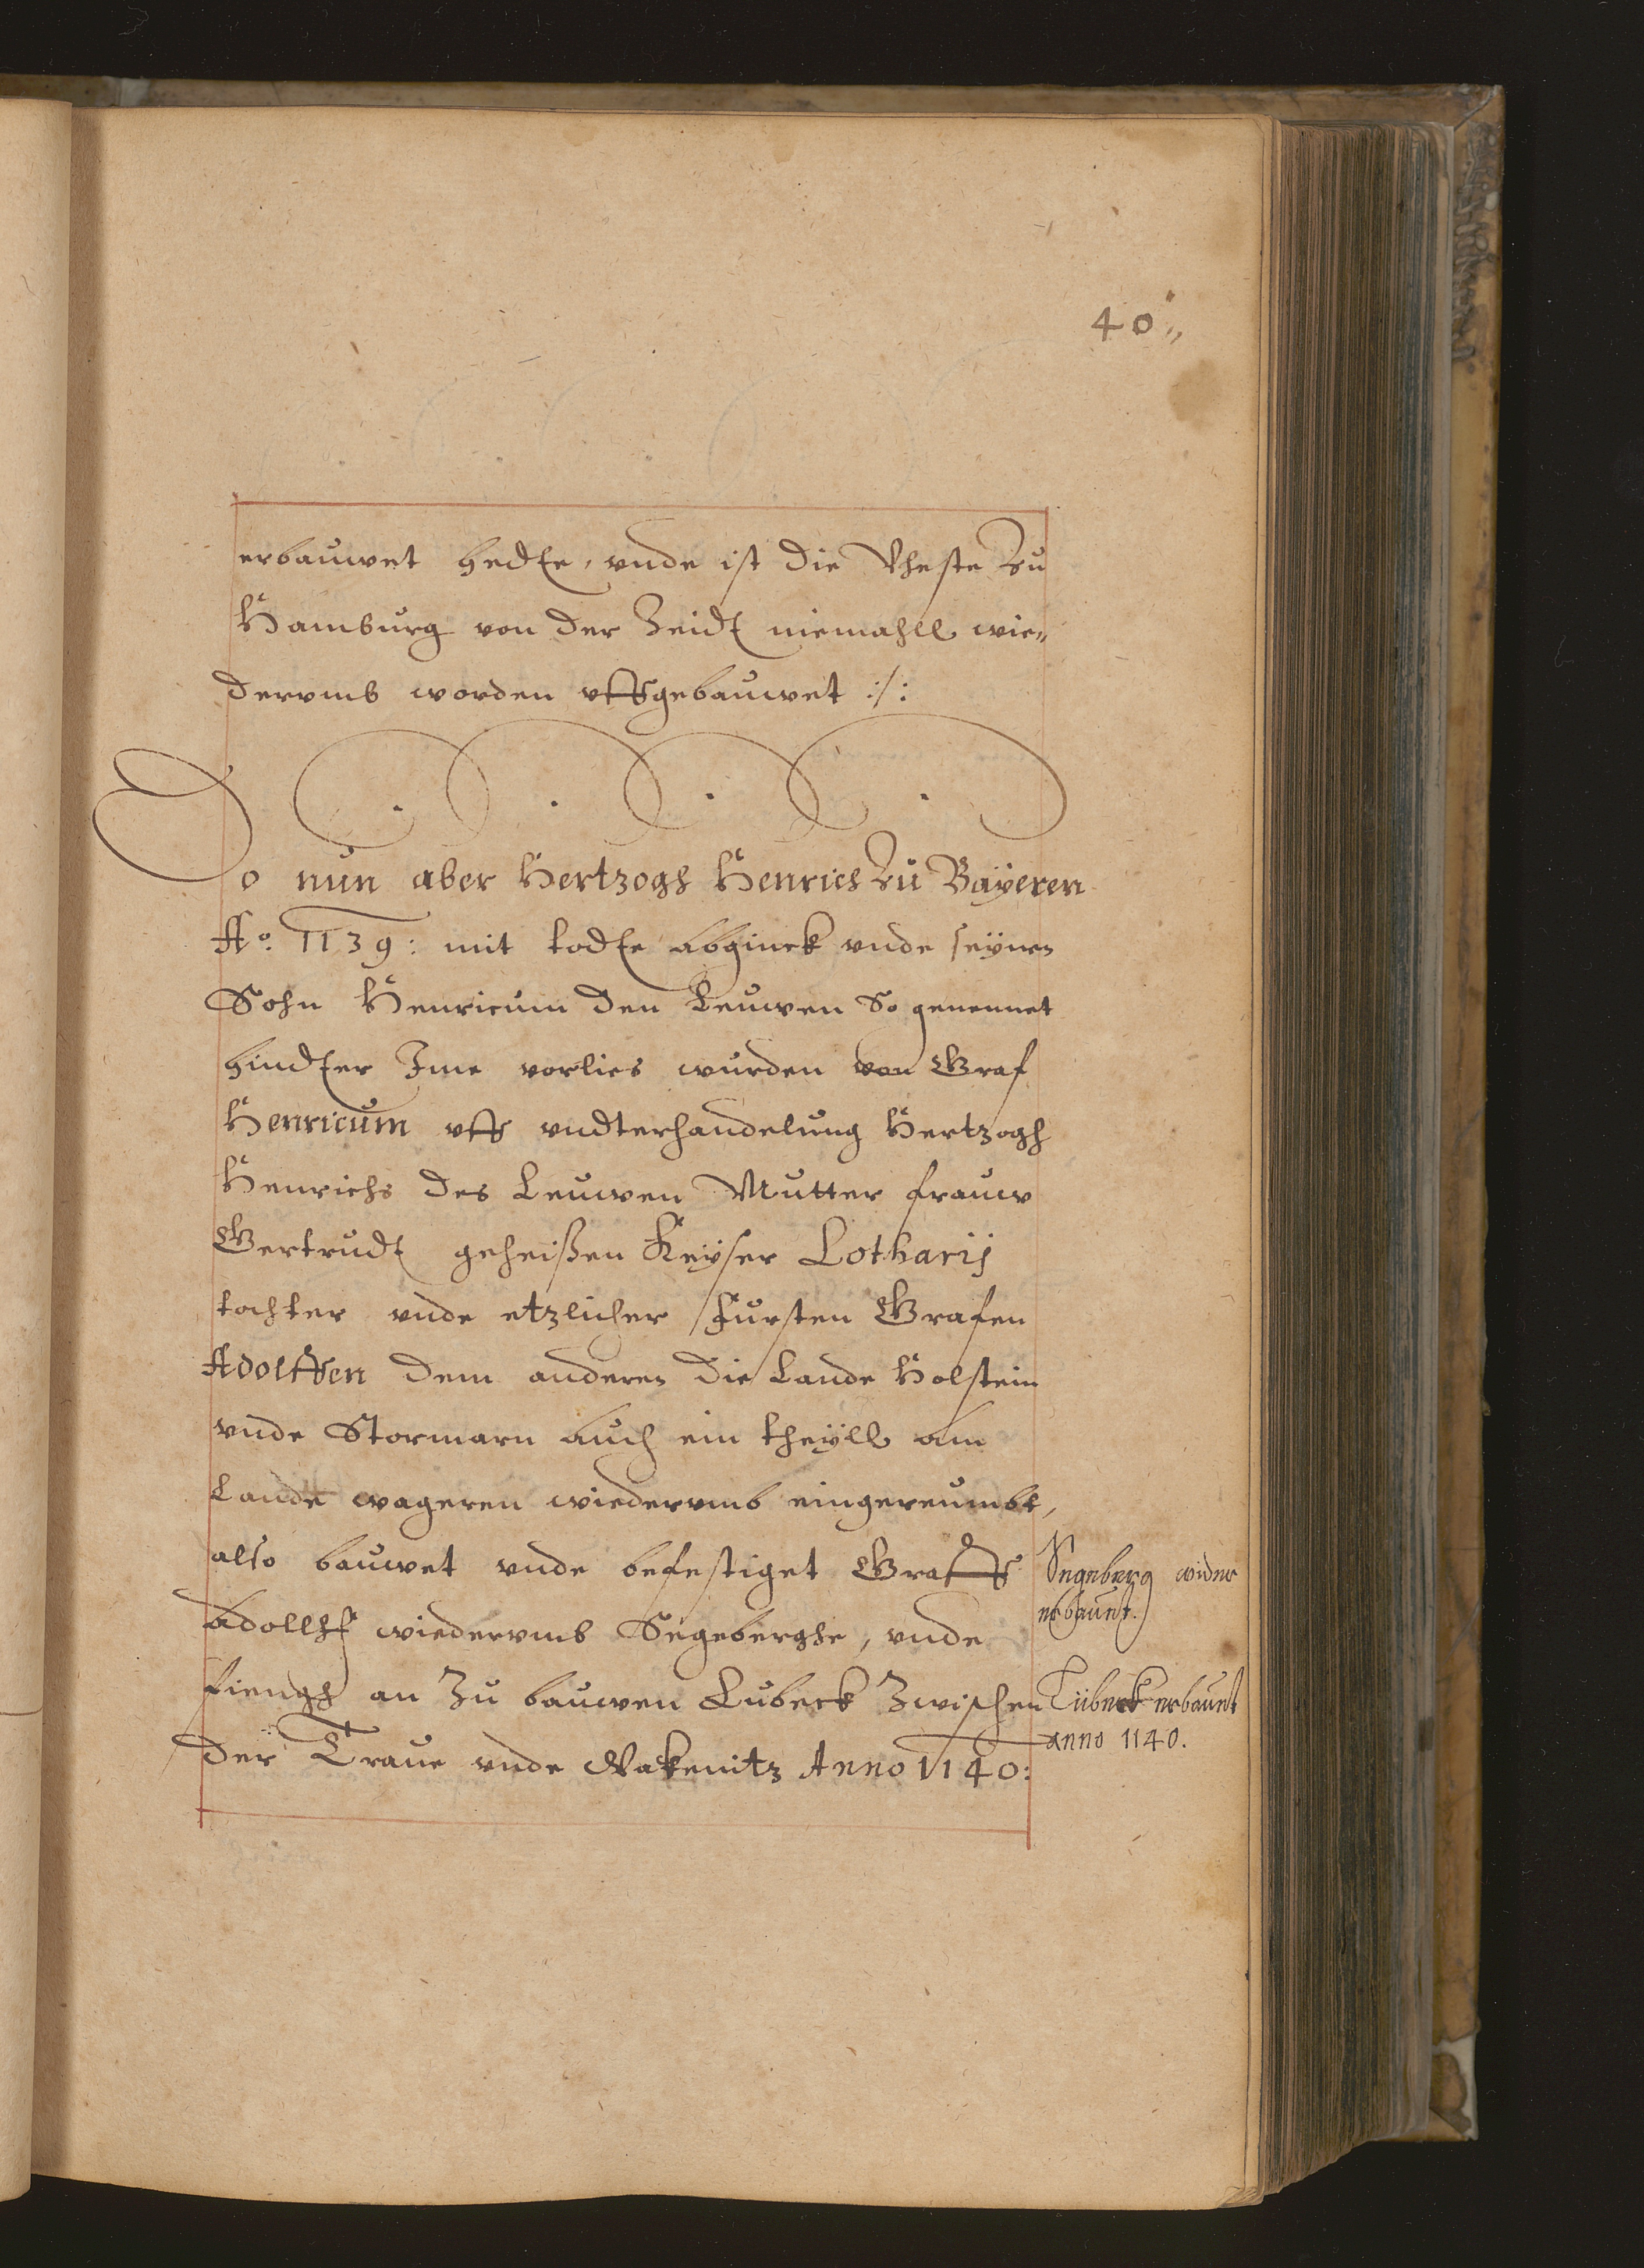 40
erbauwet hedte, vnde ist die Vheste Zu
Hamburg von der Zeidt niemahll wie„
dervmb worden vffgebauwet :/:
So nun aber Hertzogh Henrich Zu Bayeren
Ao. 1139: mit todte abginck vnde seynen
Sohn Henricum den Leuwen So genennet
hindter Ime vorlies wurden von Graf
Henricum vff vndterhandelung Hertzogh
Henrichs des Leuwen Mutter frauw
Gertrudt geheißen Keyser Lotharij
tochter vnde etzlicher Fursten Grafen
Adolffen dem anderen die Lande Holstein
vnde Stormarn auch ein theyll am
Lande wageren wiedervmb eingereumbt,
also bauwet vnde befestiget Graff
Adollhf wiedervmb Segeberghe, vnde
fiengh an Zu bauwen Lubeck Zwischen
der Traue vnde Wakenitz Anno 1140:
Segeberg wider
erbauet.
Lübeck erbauet
anno 1140.